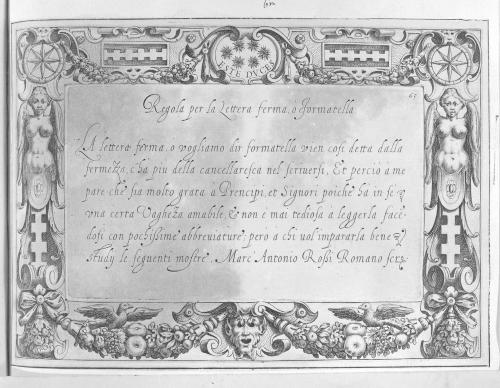 ESTE DVCE
65
Regola per la Lettera ferma, o formatella
LA lettera ferma, o vogliamo dir formatella vien cosi detta dalla
fermezza, c'ha piu della cancellaresca nel scriuersi, Et percio a me
pare che sia molto grata a Prencipi, et Signori poiche ha in se
vna certa Vaghezza amabile, & non è mai tediosa à leggerla facē-
dosi con pochissime abbreuiature; pero a chi uol impararla bene
study le seguenti mostre. Marc Antonio Rossi Romano scr.